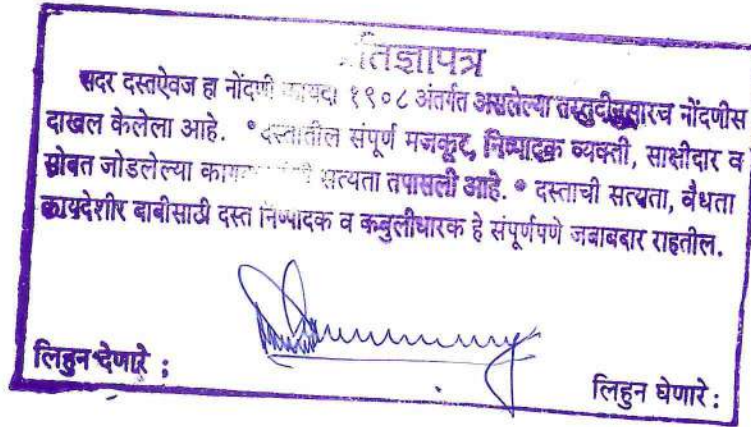 तिज्ञापत्र
सदर दस्तऐवज हा नोंदणी कायदा १९०८ अंतर्गत असलेल्या तरतुदीनुसारच नोंदणीस
दाखल केलेला आहे. • दस्तातील संपूर्ण मजकूर, निष्पादक व्यक्ती, साक्षीदार व
सोबत जोडलेल्या सत्यता तपासली आहे. • दस्ताची सत्यता, वैधता
कायदेशीर बाबीसाठी दस्त निष्पादक व कबुलीधारक हे संपूर्णपणे जबाबदार राहतील.
लिहुन देणारे ;
लिहुन घेणारे :